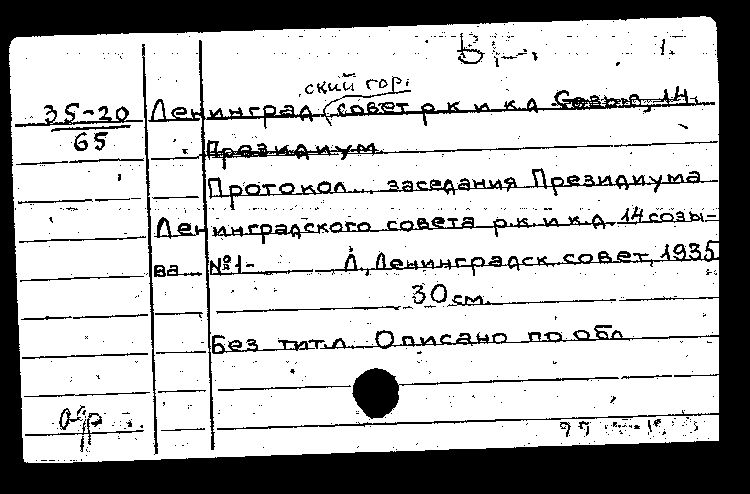 ский гор.
35-20 Ленинград совет р к и к д Созыв, 14.
65 Президиум
Протокол... заседания Президиума
Ленинградского совета р.к. и к.д. 14 созы-
ва... №1- Л., Ленинградск. совет, 1935
30 см.
Без тит.л. Описано по обл.